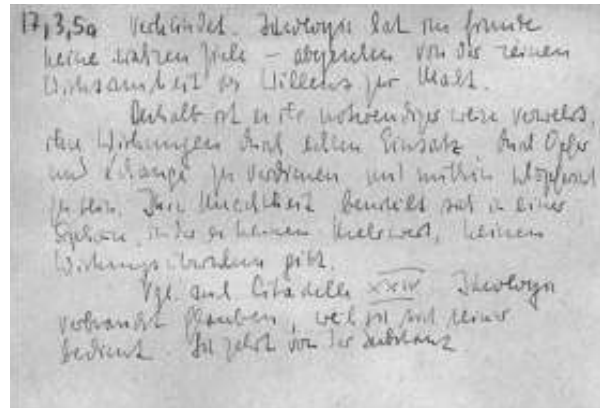 17,3,5a verkündet. Ideologie hat im Grunde
keine wahren Ziele – abgesehen von der reinen
Wirksamkeit des Willens zur Macht.
Deshalb ist es ihr notwendiger weise verwehrt,
ihre Wirkungen durch echten Einsatz durch Opfer
und zu verdienen und mithin
zu sein. Ihre bewirkt sich in einer
Sphäre, in der es keinen Mehrwert, keinen
Wirkungsüberschuss gibt.
Vgl. auch Citadelle XXIV. Ideologie
verbraucht Glauben, weil sie sich seiner
bedient. Sie zehrt von der Substanz.